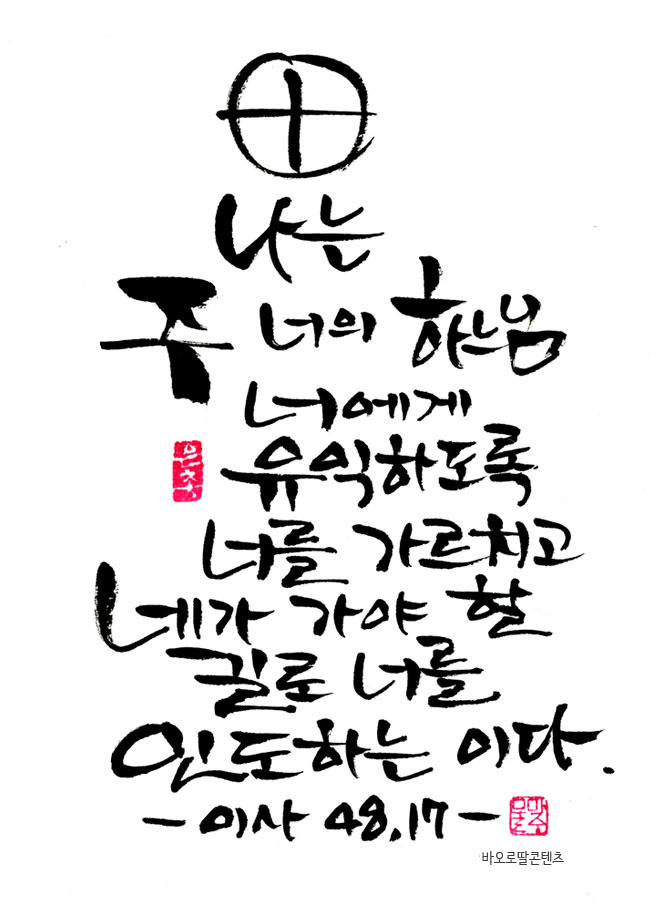 나는
주 너의 하느님
너에게
은총
유익하도록
너를 가르치고
네가 가야 할
길로 너를
인도하는 이다.
- 이사 48,17 -
바오로딸콘텐츠